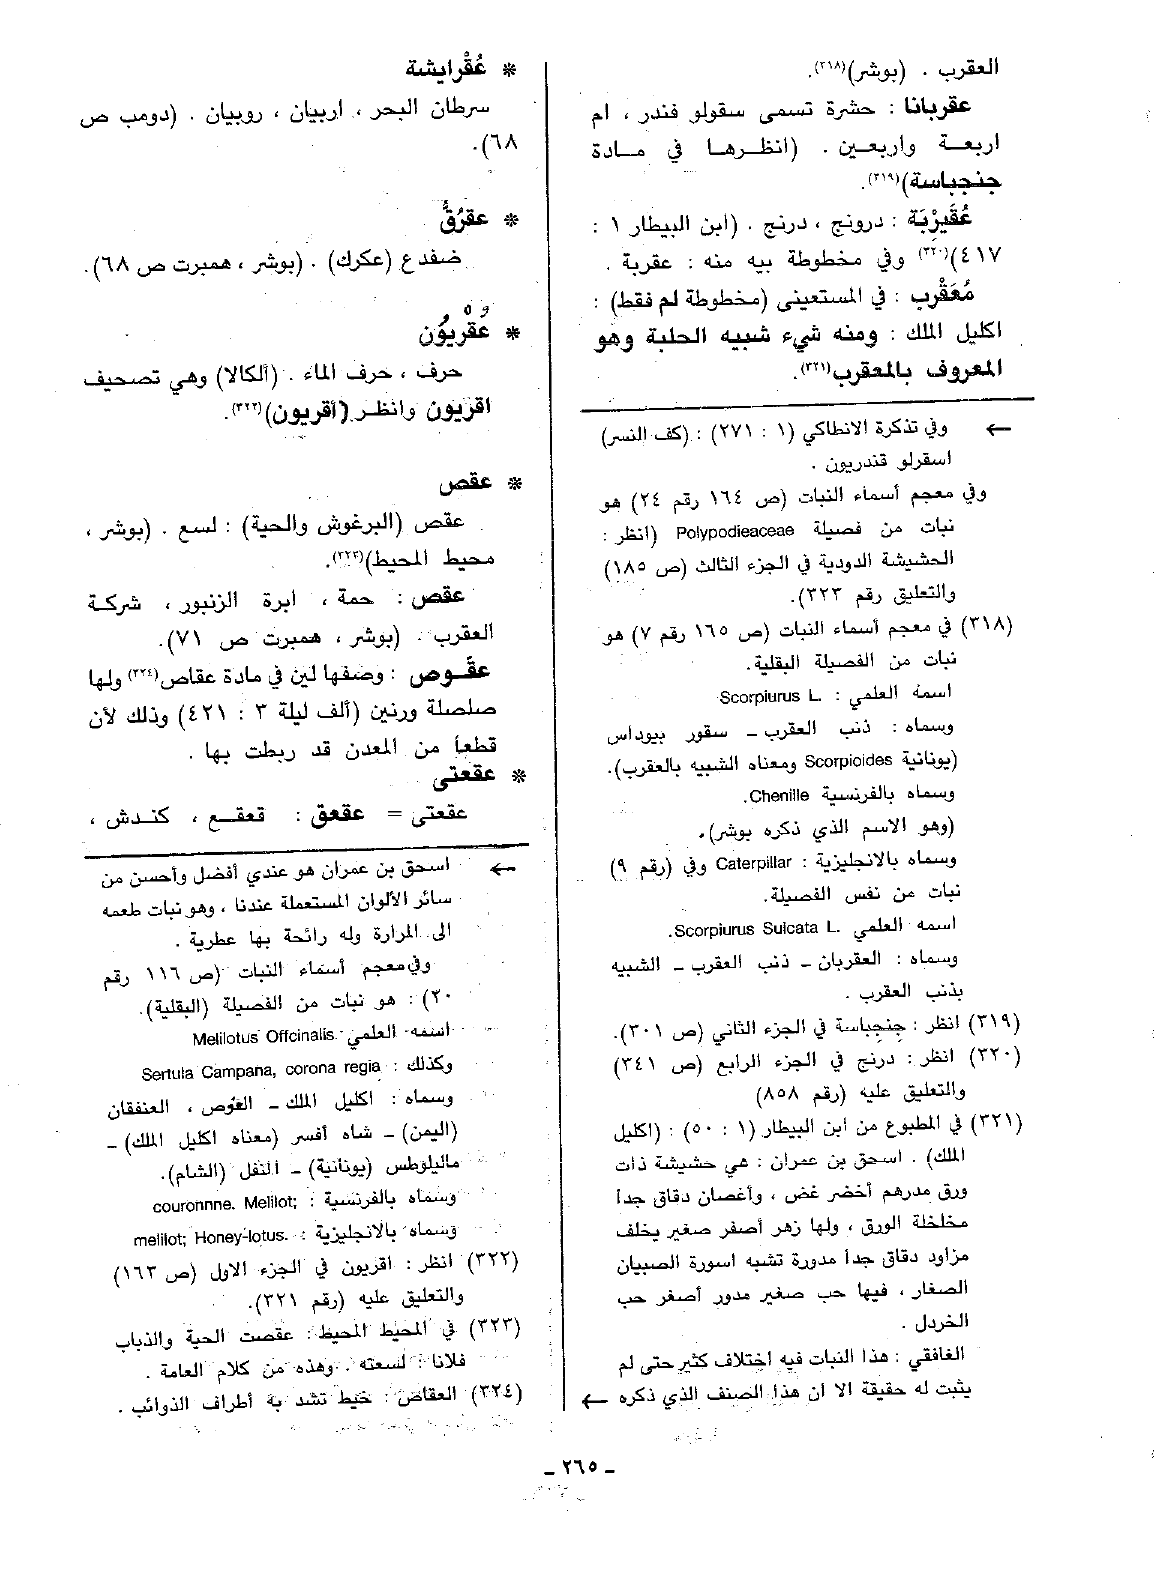 العقرب . (بوشر)(٣١٨).
عقربانا : حشرة تسمى سقولو فندر ، ام
اربعــة واربعــين . (انظـرهـا في مـادة
جنجباسة)(٣١٩).
عُقَيْرْبَة : درونج ، درنج . (ابن البيطار ١ :
٤١٧)(٣٢٠) وفي مخطوطة بيه منه : عقربة .
مُعَقْرب : في المستعينى (مخطوطة لم فقط) :
اكليل الملك : ومنه شيء شبيه الحلبة وهو
المعروف بالمعقرب(٣٢١).
← وفي تذكرة الانطاكي (١ : ٢٧١) : (كف النسر)
اسقرلو قندريون .
وفي معجم أسماء النبات (ص ١٦٤ رقم ٢٤) هو
نبات من فصيلة Polypodieaceae (انظر :
الحشيشة الدودية في الجزء الثالث (ص ١٨٥)
والتعليق رقم ٣٢٣).
(٣١٨) في معجم أسماء النبات (ص ١٦٥ رقم ٧) هو
نبات من الفصيلة البقلية.
اسمه العلمي : Scorpiurus L.
وسماه : ذنب العقرب ـ سقور بيوداس
(يونانية Scorpioides ومعناه الشبيه بالعقرب).
وسماه بالفرنسية Chenille.
(وهو الاسم الذي ذكره بوشر).
وسماه بالانجليزية : Caterpillar وفي (رقم ٩)
نبات من نفس الفصيلة.
اسمه العلمي Scorpiurus Sulcata L.
وسماه : العقربان ـ ذنب العقرب ـ الشبيه
بذنب العقرب .
(٣١٩) انظر : جنجباسة في الجزء الثاني (ص ٣٠١).
(٣٢٠) انظر : درنج في الجزء الرابع (ص ٣٤١)
والتعليق عليه (رقم ٨٥٨)
(٣٢١) في المطبوع من ابن البيطار (١ : ٥٠) : (اكليل
الملك) . اسحق بن عمران : هي حشيشة ذات
ورق مدرهم أخضر غض ، وأغصان دقاق جداً
مخلخلة الورق ، ولها زهر أصفر صغير يخلف
مزاود دقاق جداً مدورة تشبه اسورة الصبيان
الصغار ، فيها حب صغير مدور أصغر حب
الخردل .
الغافقي : هذا النبات فيه اختلاف كثير حتى لم
يثبت له حقيقة الا ان هذا الصنف الذي ذكره ←
* عُقْرايشة
سرطان البحر ، اربيان ، روبيان . (دومب ص
٦٨).
* عقرُقُّ
ضفدع (عكرك) . (بوشر ، همبرت ص ٦٨).
* عقريوُن
حرف ، حرف الماء . (ألكالا) وهي تصحيف
اقريون وانظر (أقريون)(٣٢٢).
* عقص
عقص (البرغوش والحية) : لسع . (بوشر ،
محيط المحيط)(٣٢٣).
عقص : حمة ، ابرة الزنبور ، شركة
العقرب . (بوشر ، همبرت ص ٧١).
عقُوص : وصفها لين في مادة عقاص(٣٢٤) ولها
صلصلة ورنين (ألف ليلة ٣ : ٤٢١) وذلك لأن
قطعاً من المعدن قد ربطت بها .
* عقعتى
عقعتى = عقعق : قعقــع ، كنـدش ،
← اسحق بن عمران هو عندي أفضل وأحسن من
سائر الألوان المستعملة عندنا ، وهو نبات طعمه
الى المرارة وله رائحة بها عطرية .
وفي معجم أسماء النبات (ص ١١٦ رقم
٢٠) : هو نبات من الفصيلة (البقلية).
اسمه العلمي Melilotus Offcinalis.
وكذلك : Sertula Campana, corona regia
وسماه : اكليل الملك ـ الغوص ، العنفقان
(اليمن) ـ شاه أفسر (معناه اكليل الملك) ـ
ماليلوطس (يونانية) ـ النفل (الشام).
وسماه بالفرنسية : couronnne. Melilot;
وسماه بالانجليزية : melilot; Honey-lotus.
(٣٢٢) انظر : اقريون في الجزء الاول (ص ١٦٣)
والتعليق عليه (رقم ٣٢١).
(٣٢٣) في المحيط المحيط : عقصت الحية والذباب
فلانا : لسعته . وهذه من كلام العامة .
(٣٢٤) العقاص : خيط تشد به أطراف الذوائب .
ـ ٢٦٥ ـ